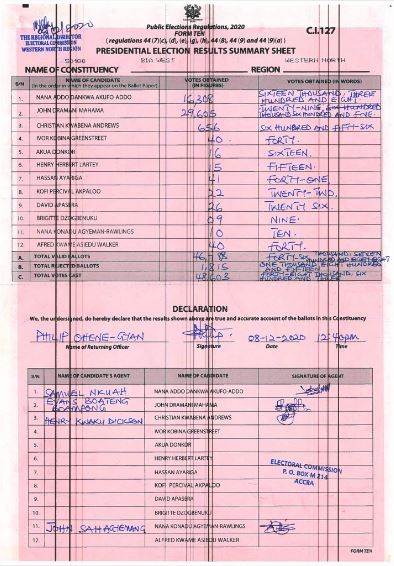 Public Elections Regulations, 2020
FORM TEN
C.I.127
( regulations 44 (7)(c), (d), (e), (g), (h), 44 (8), 44 (9) and 44 (9)(a) )
THE REGIONAL DIRECTOR
ELECTORAL COMMISSION
WESTERN NORTH REGION
PRESIDENTIAL ELECTION RESULTS SUMMARY SHEET
NAME OF CONSTITUENCY BIA WEST REGION WESTERN NORTH
S/N NAME OF CANDIDATE (In the order in which they appear on the Ballot Paper) VOTES OBTAINED (IN FIGURES) VOTES OBTAINED (IN WORDS)
1. NANA ADDO DANKWA AKUFO ADDO 16,308 SIXTEEN THOUSAND, THREE HUNDRED AND EIGHT
2. JOHN DRAMANI MAHAMA 29,605 TWENTY-NINE THOUSAND SIX HUNDRED AND FIVE.
3. CHRISTIAN KWABENA ANDREWS 656 SIX HUNDRED AND FIFTY-SIX
4. IVOR KOBINA GREENSTREET 40 FORTY.
5. AKUA DONKOR 16 SIXTEEN.
6. HENRY HERBERT LARTEY 15 FIFTEEN.
7. HASSAN AYARIGA 41 FORTY-ONE.
8. KOFI PERCIVAL AKPALOO 22 TWENTY-TWO.
9. DAVID APASERA 26 TWENTY SIX.
10. BRIGITTE DZOGBENUKU 09 NINE.
11. NANA KONADU AGYEMAN-RAWLINGS 10 TEN.
12. ALFRED KWAME ASIEDU WALKER 40 FORTY.
A. TOTAL VALID BALLOTS FORTY-SIX THOUSAND, SEVEN HUNDRED AND EIGHTY-EIGHT
B. TOTAL REJECTED BALLOTS 1,815 ONE THOUSAND EIGHT HUNDRED AND FIFTEEN
C. TOTAL VOTES CAST 48,603 FORTY-EIGHT THOUSAND, SIX HUNDRED AND THREE
DECLARATION
We, the undersigned, do hereby declare that the results shown above are true and accurate account of the ballots in this Constituency
PHILIP OHENE-GYAN 08-12-2020 12:40pm
Name of Returning Officer Signature Date Time
S/N NAME OF CANDIDATE'S AGENT NAME OF CANDIDATE SIGNATURE OF AGENT
1. SAMUEL NKUAH NANA ADDO DANKWA AKUFO-ADDO
2. EVANS BOATENG JOHN DRAMANI MAHAMA
3. HENRY KWAKU DICKSON CHRISTIAN KWABENA ANDREWS
4. IVOR KOBINA GREENSTREET
5. AKUA DONKOR
6. HENRY HERBERT LARTEY
7. HASSAN AYARIGA
8. KOFI PERCIVAL AKPALOO
9. DAVID APASERA
10. BRIGITTE DZOGBENUKU
11. NANA KONADU AGYEMAN-RAWLINGS
12. ALFRED KWAME ASIEDU WALKER
ELECTORAL COMMISSION
P. O. BOX M 214
ACCRA
FORM TEN